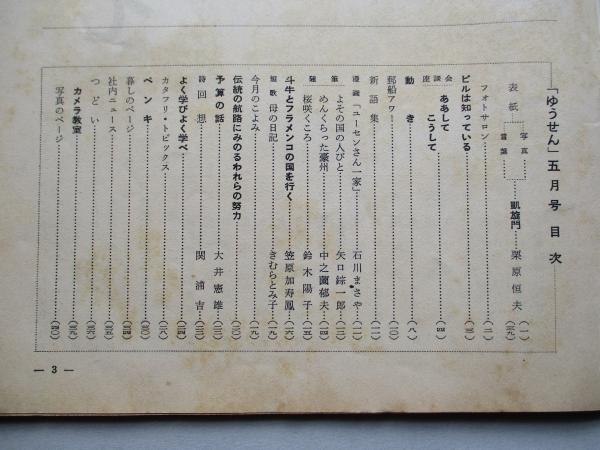 「ゆうせん」五月号 目次
表紙 写真 言葉 凱旋門 栗原恒夫 (一)
フォトサロン (二)
ビルは知っている (三)
座談会 ああして こうして (四)
動き (八)
郵船アワー (一〇)
新語集 (一一)
漫画「ユーセンさん一家」 石川まさや (一二)
随筆 よその国の人びと 矢口錝一郎 (一三)
めんくらった豪州 中之薗郁夫 (一四)
桜咲くころ 鈴木陽子 (一五)
斗牛とフラメンコの国を行く 笠原加寿鳳
短歌 母の日記 きむらとみ子 (一九)
今月のこよみ (一九)
伝統の航路にみのるわれらの努力
予算の話 大井憲雄
詩 回想 関浦吉
よく学びよく学べ
カタフリ・トピックス
ペンキ
暮しのページ
社内ニュース
つどい
カメラ教室
写真のページ
— 3 —